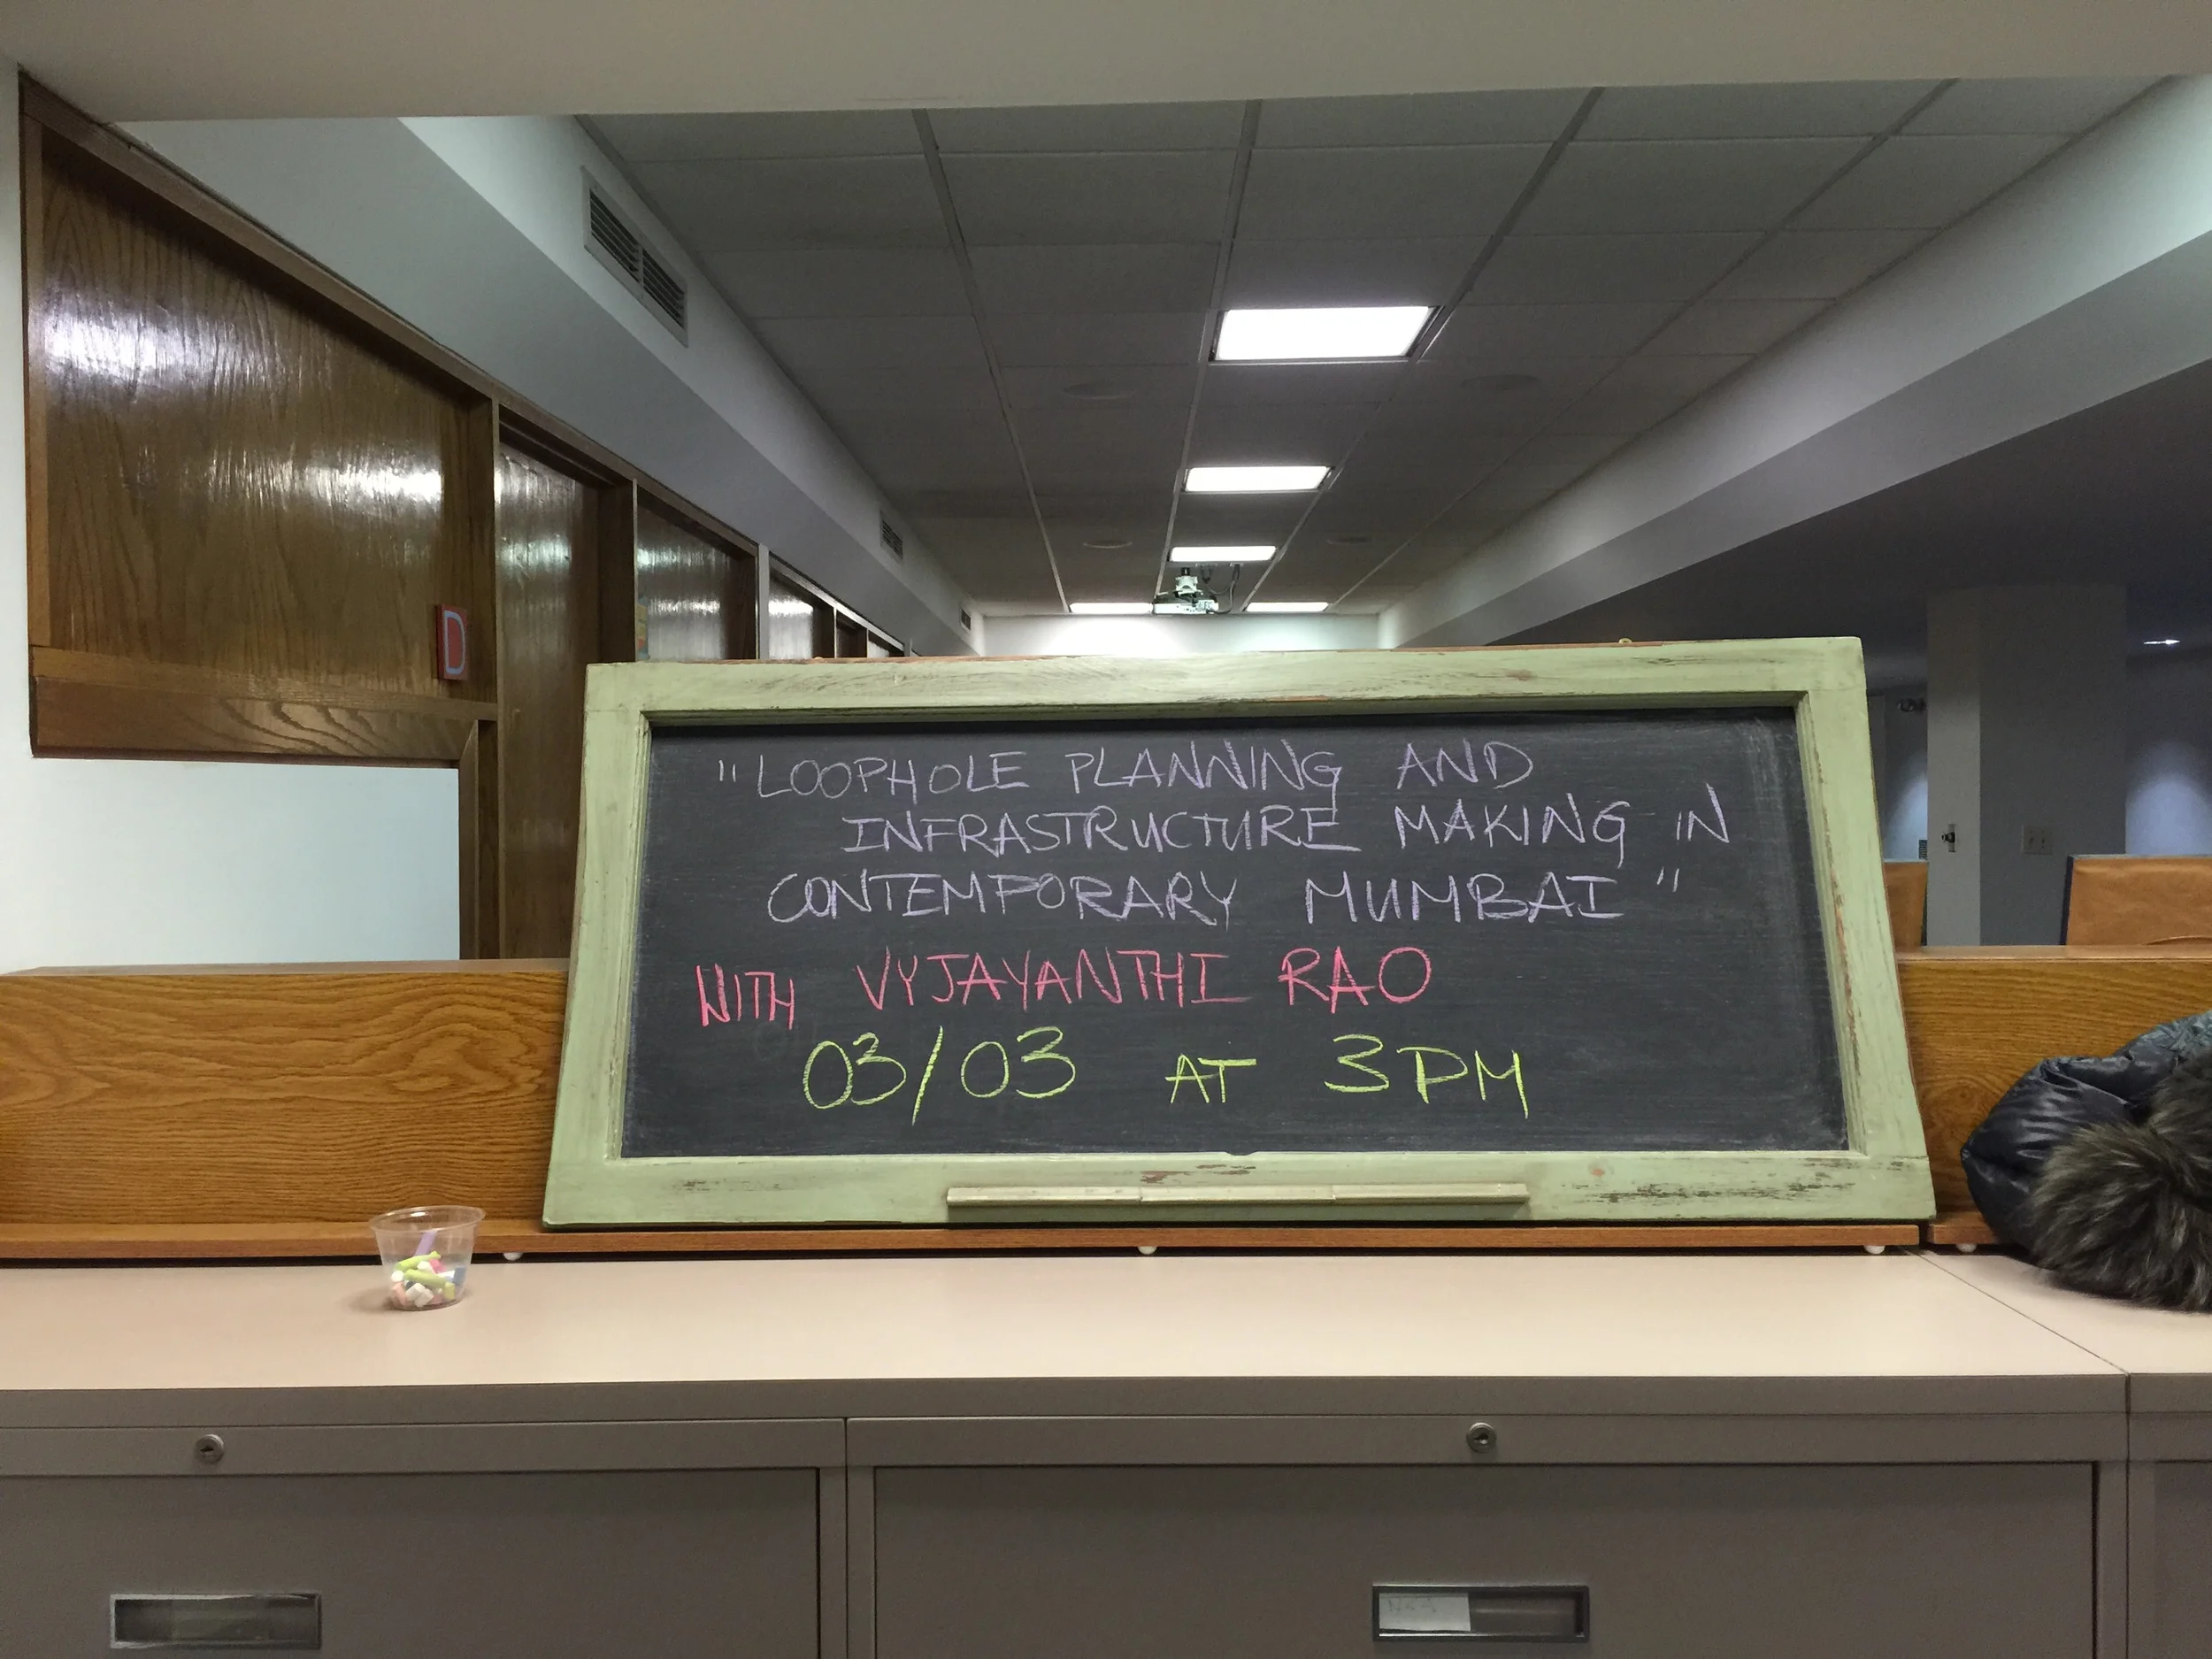 D
"LOOPHOLE PLANNING AND
INFRASTRUCTURE MAKING IN
CONTEMPORARY MUMBAI"
WITH VYJAYANTHI RAO
03/03 AT 3PM